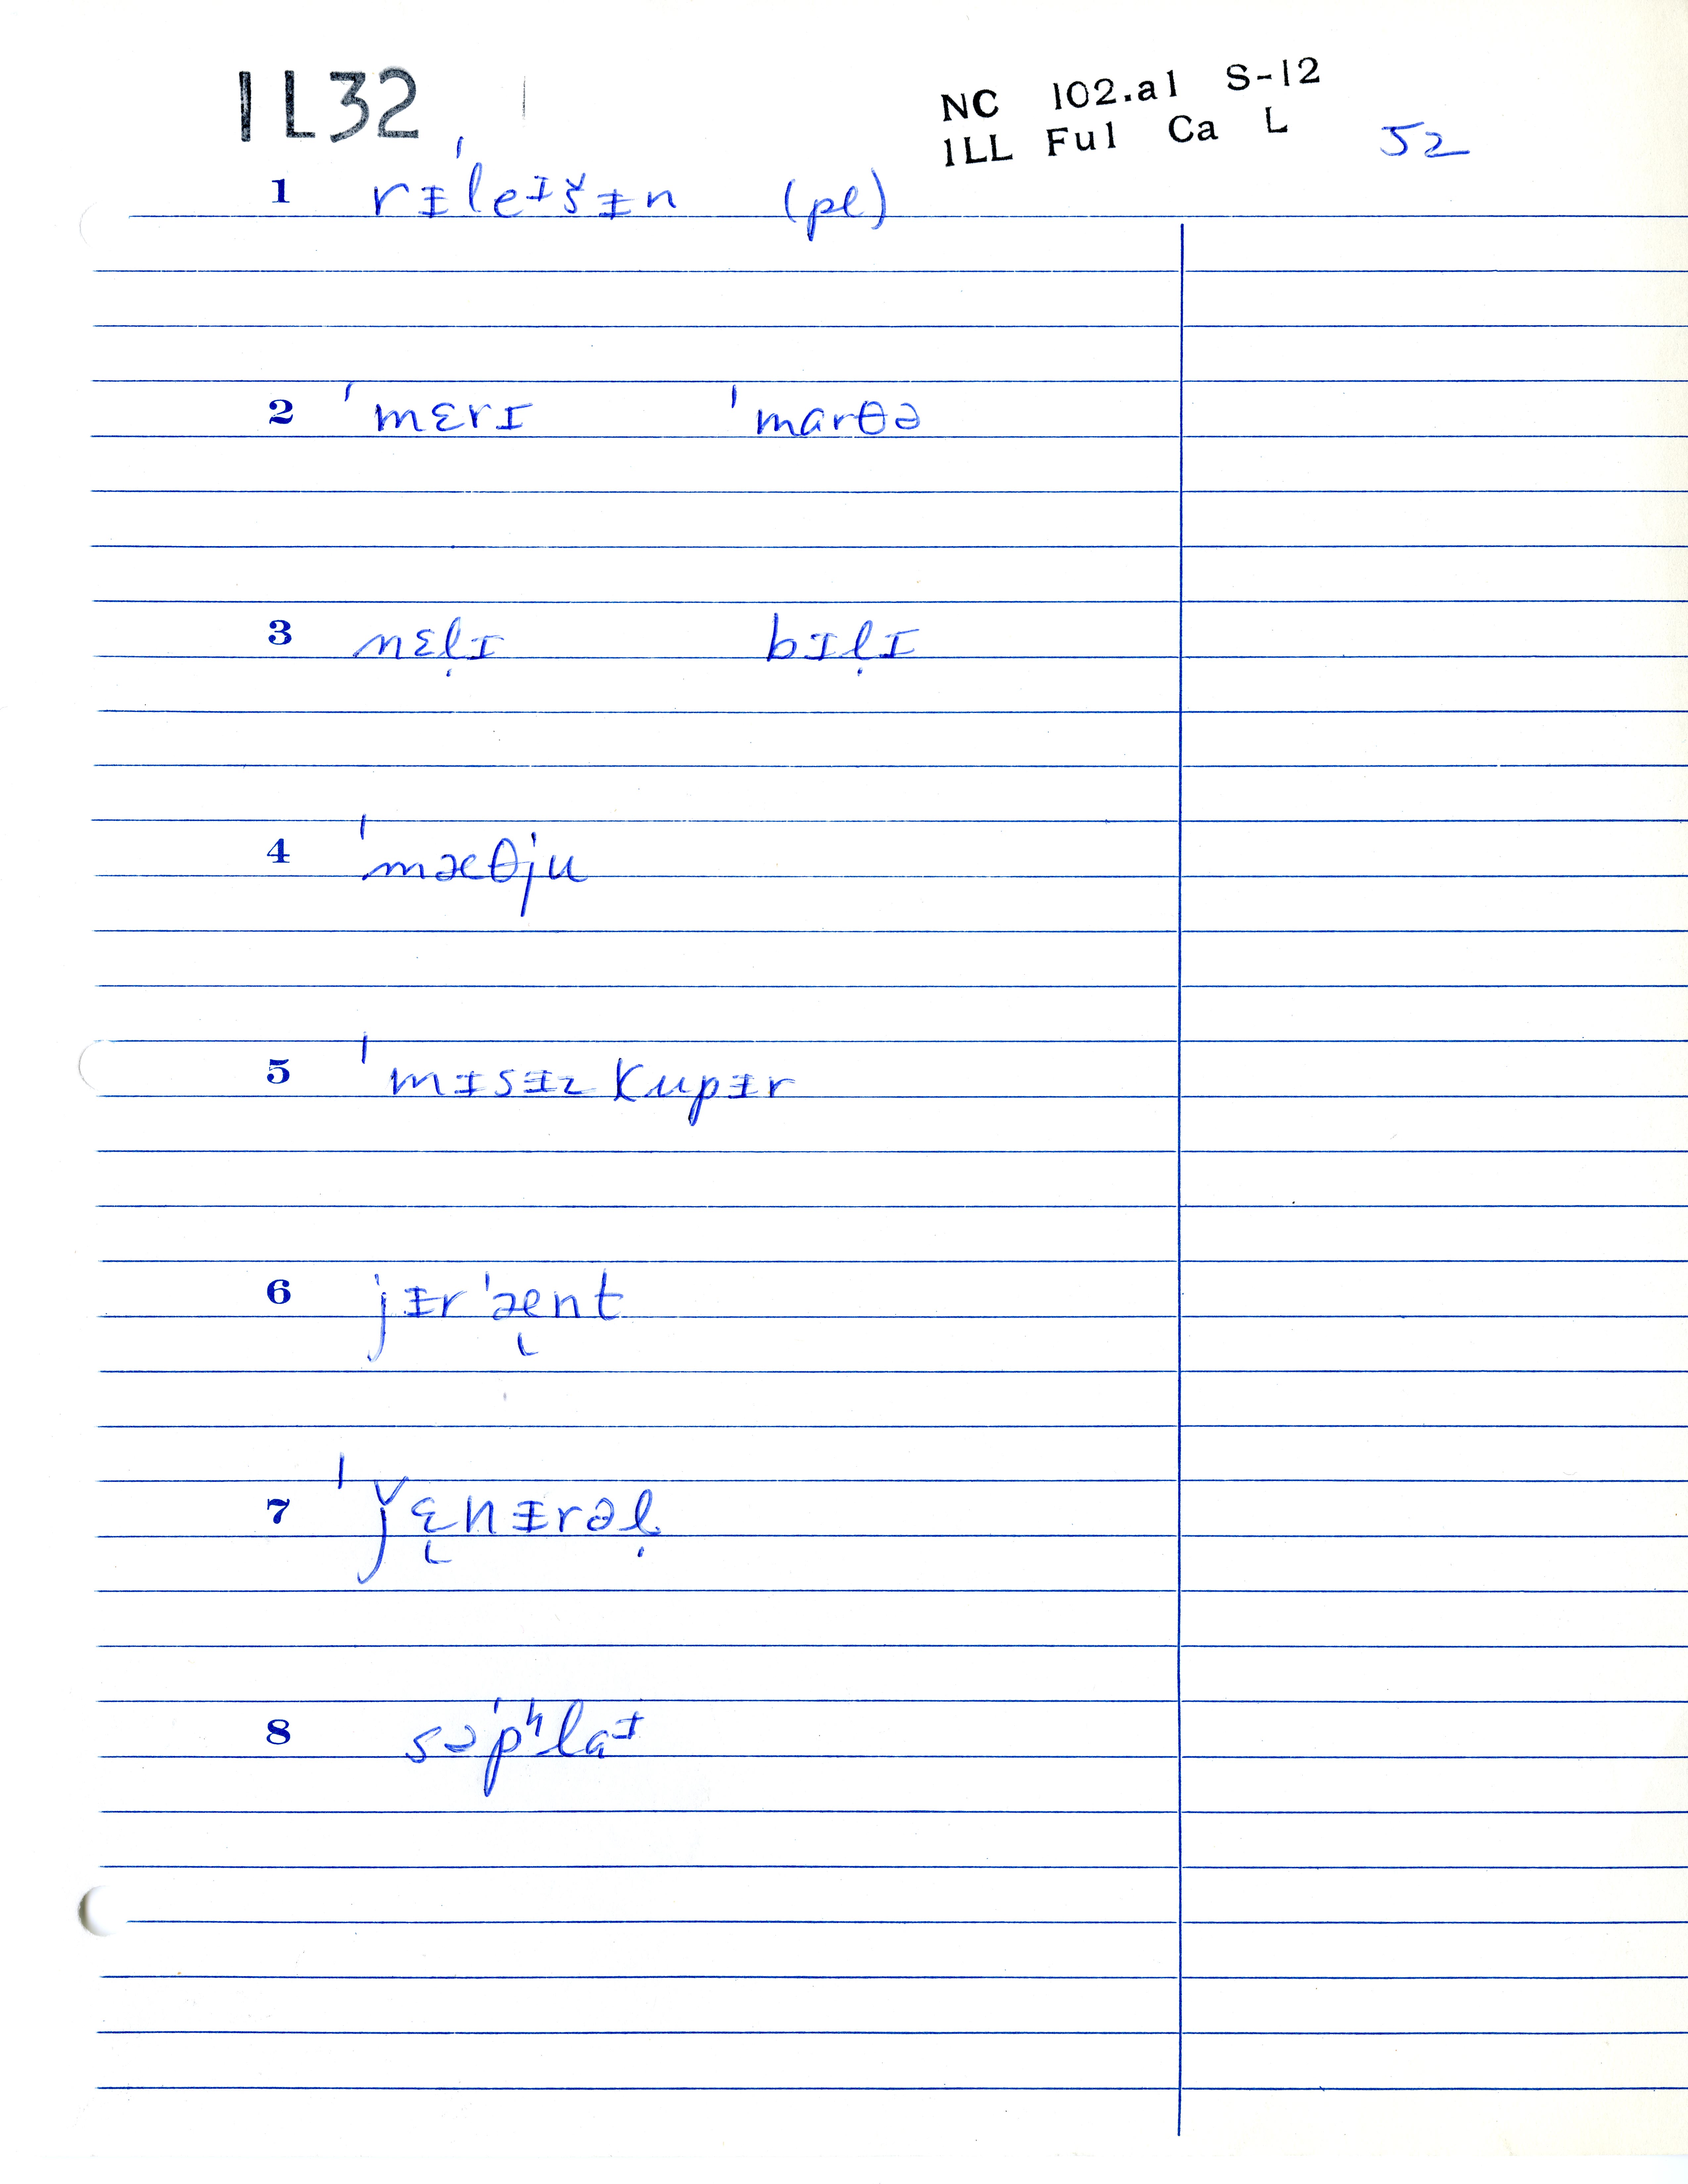 IL32
NC 102.a1 S-12
ILL Ful Ca L 52
1 rᵻˈleᶦšᵻn (pl)
2 ˈmɛrɪ ˈmarθə
3 nɛḷɪ bɪḷɪ
4 ˈmæθju
5 ˈmᵻsᵻz kupᵻr
6 jᵻrˈæ̨nt
7 ˈǰɛ̨nᵻrəḷ
8 səˈpʰlaᶦ